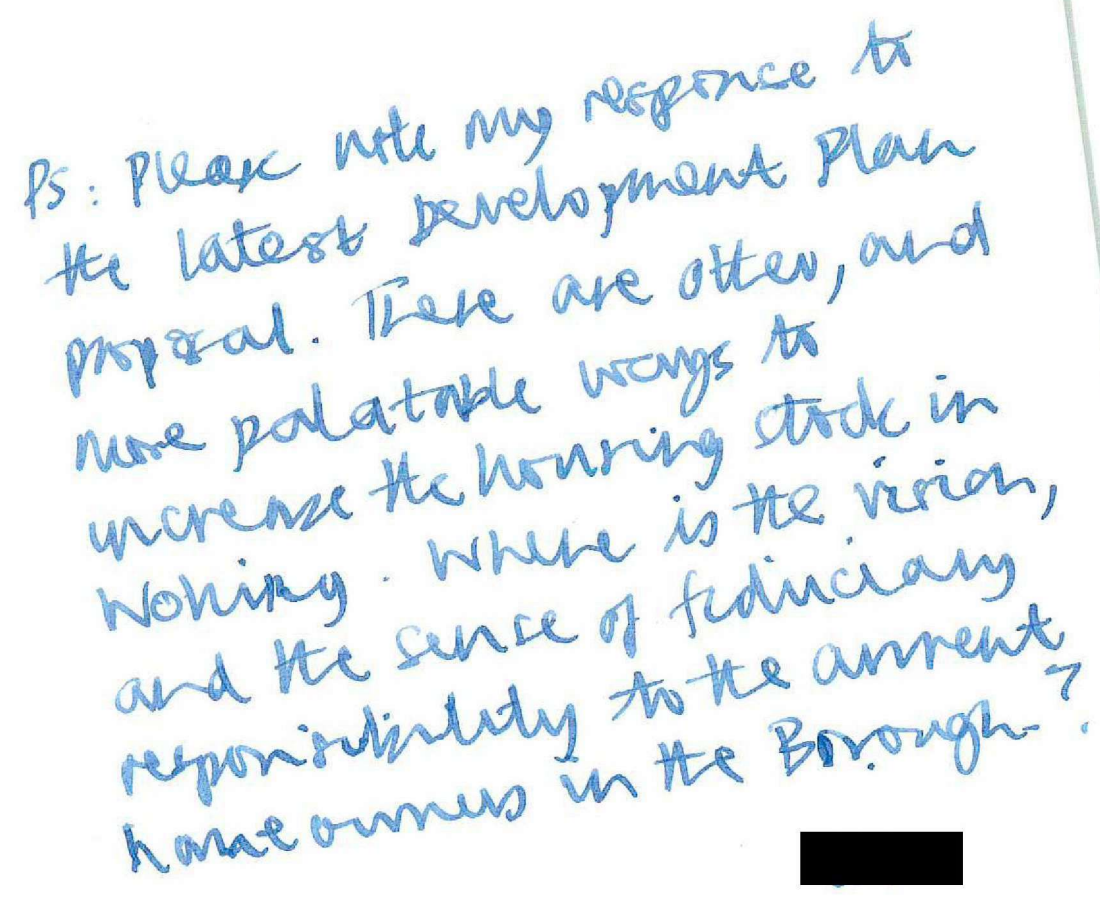 Ps: Please note my response to
the latest Development Plan
proposal. There are other, and
more palatable ways to
increase the housing stock in
Woking. Where is the vision,
and the sense of fiduciary
responsibility to the current
homeowners in the Borough?